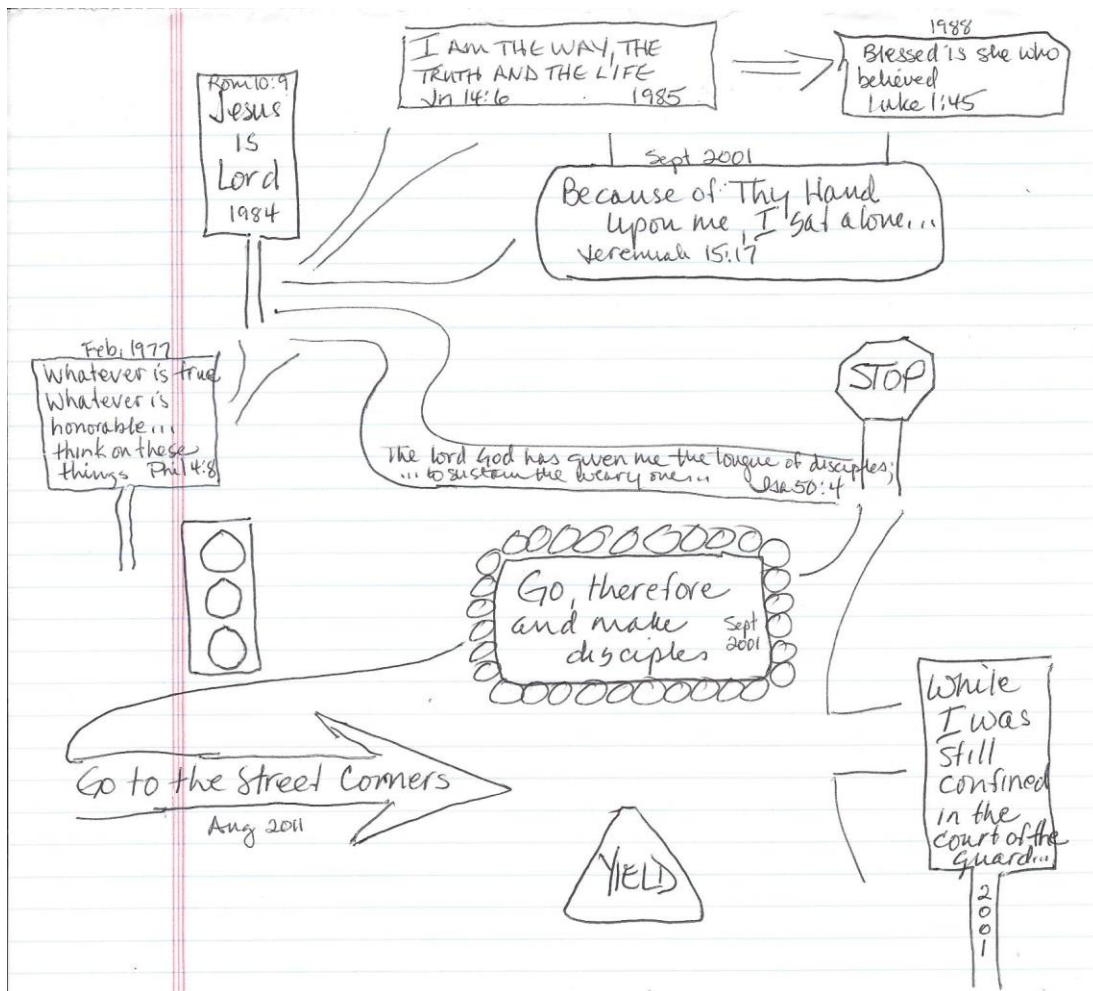 1988
I AM THE WAY, THE
TRUTH AND THE LIFE
Jn 14:6 1985
Blessed is she who
believed
Luke 1:45
Rom 10:9
Jesus
is
Lord
1984
Sept 2001
Because of Thy Hand
upon me, I sat alone...
Jeremiah 15:17
Feb, 1977
Whatever is true
Whatever is
honorable...
think on these
things Phil 4:8
STOP
The Lord God has given me the tongue of disciples;
...to sustain the weary one... Isa 50:4
Go, therefore
and make
disciples
Sept
2001
Go to the Street Corners
Aug 2011
YIELD
While
I was
still
confined
in the
court of the
guard...
2001